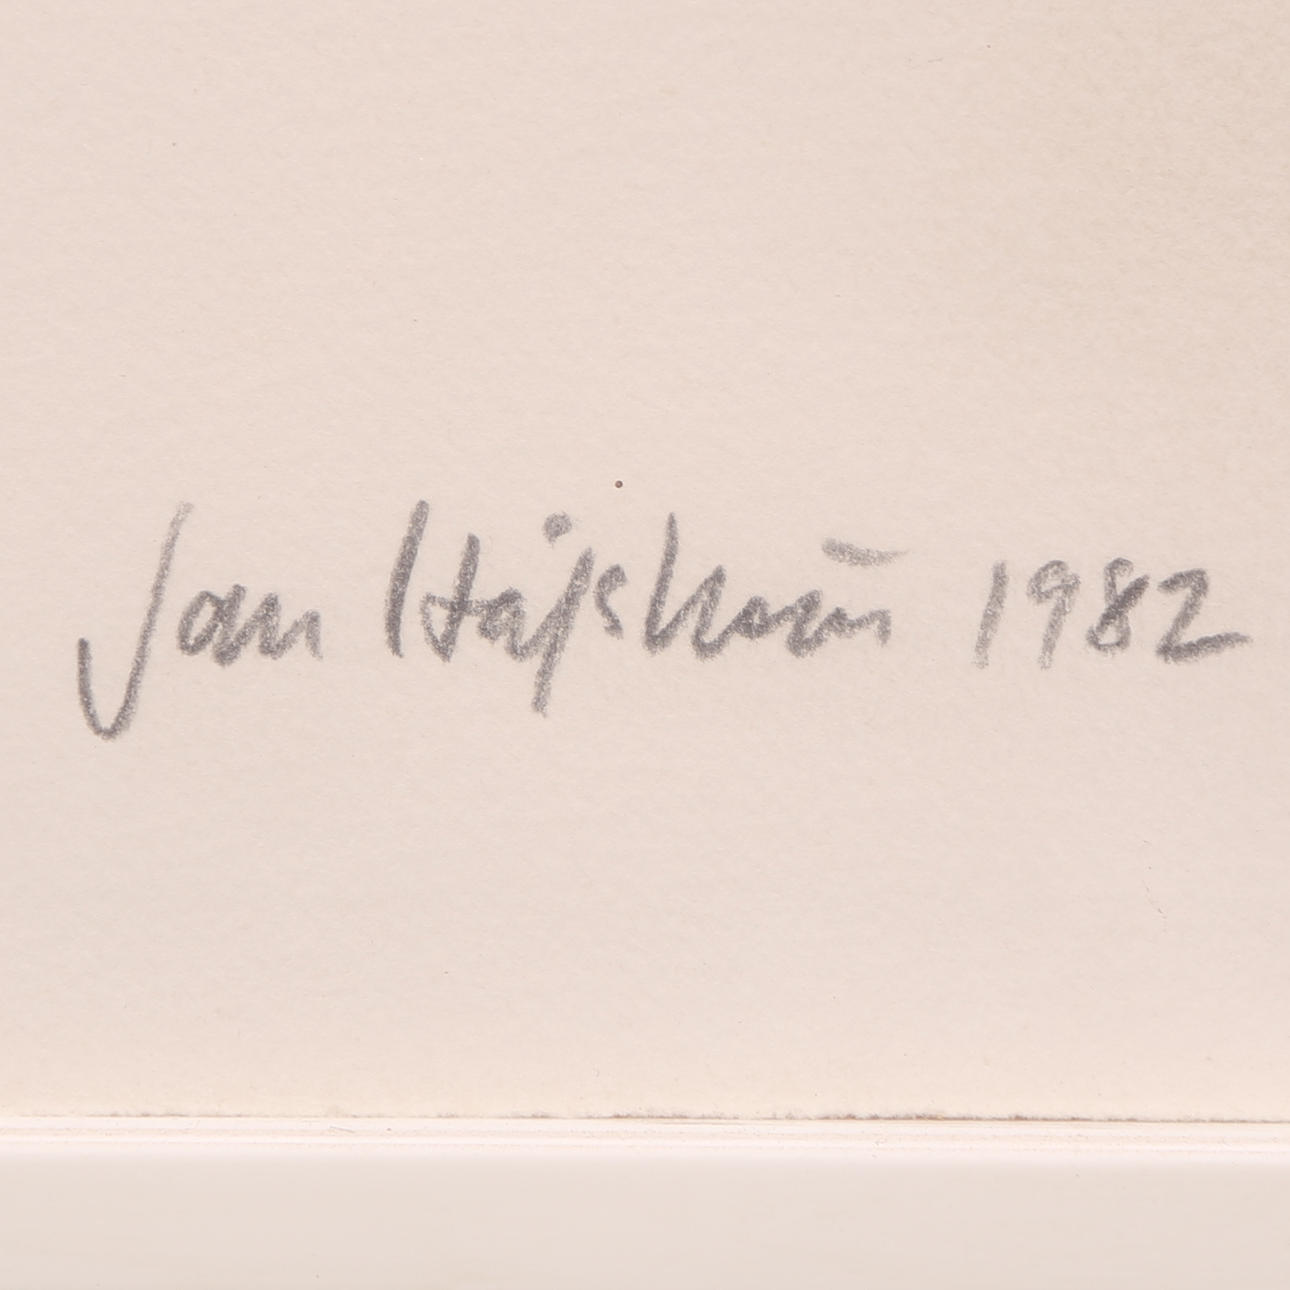 Jan Håfström 1982